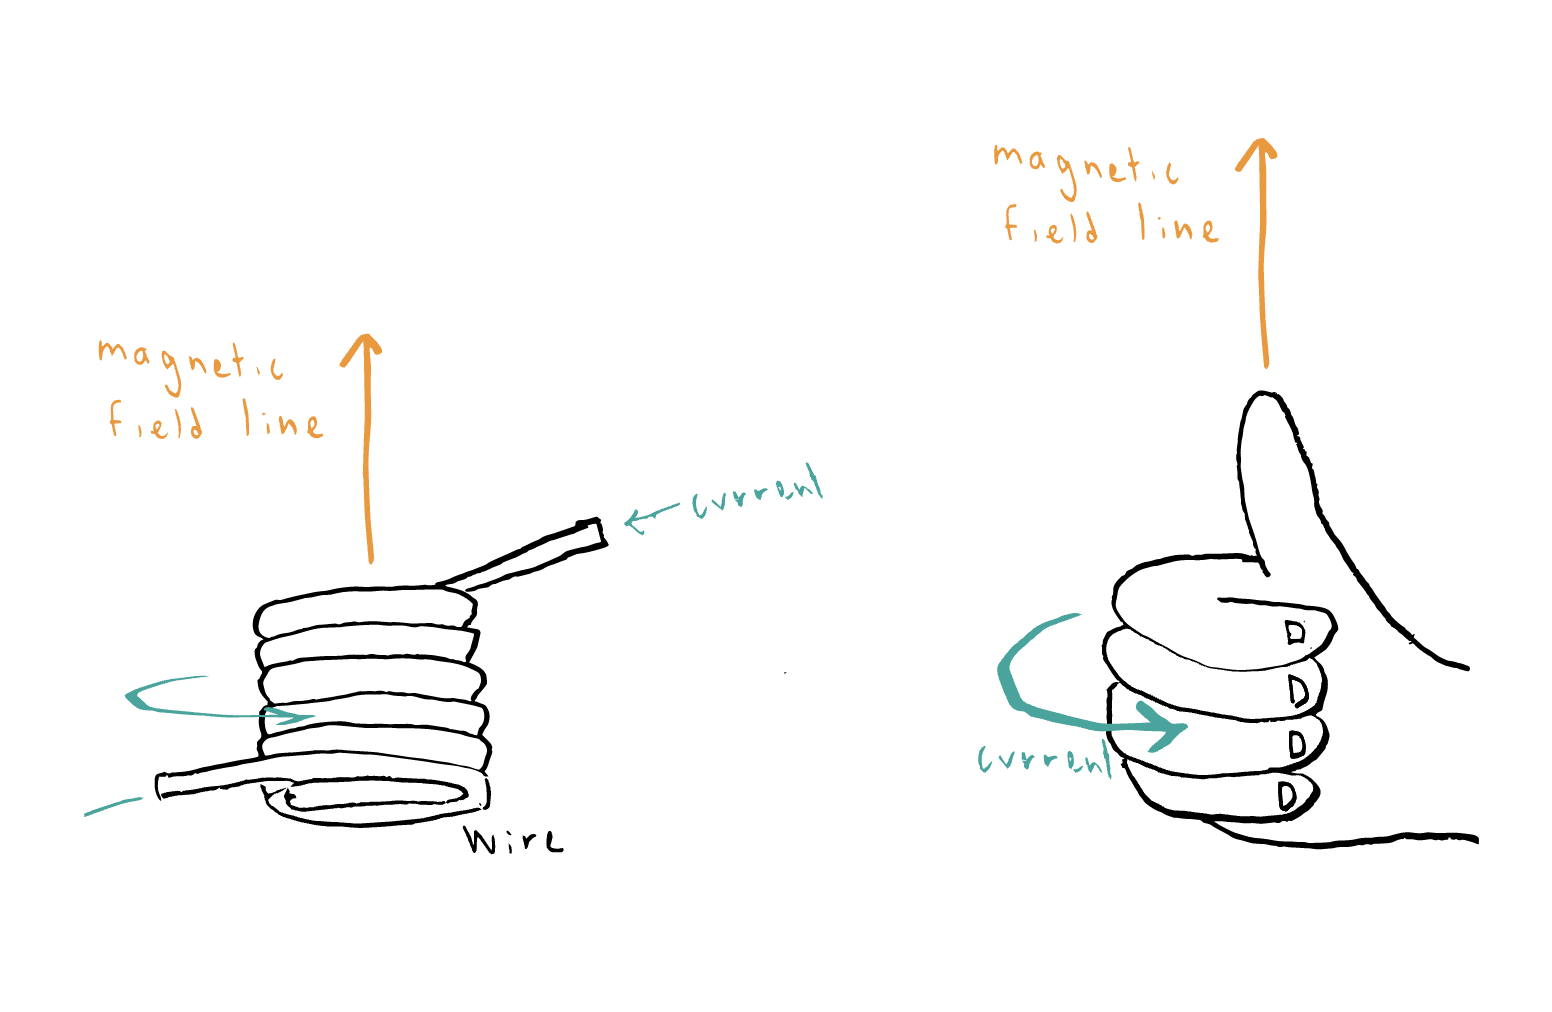 magnetic
field line
current
wire
magnetic
field line
current